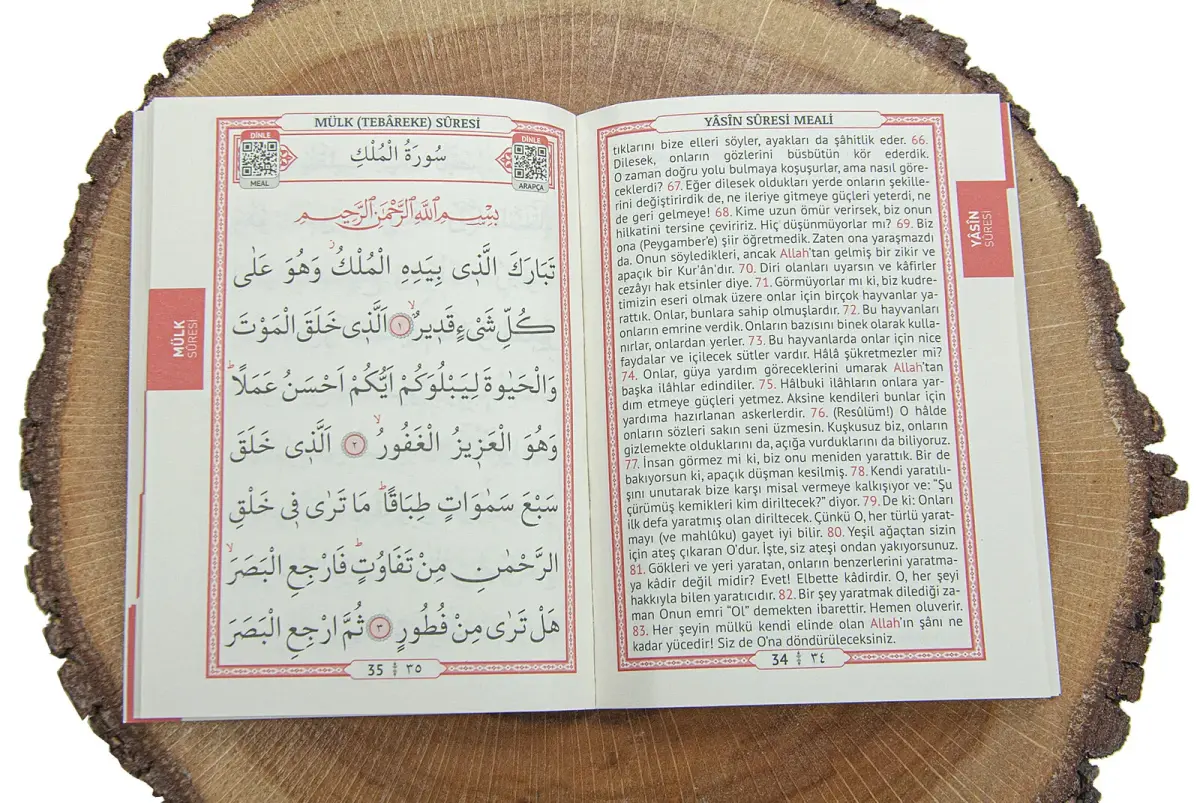 YÂSÎN SÛRESİ MEALİ
tıklarını bize elleri söyler, ayakları da şâhitlik eder. 66.
Dilesek, onların gözlerini büsbütün kör ederdik.
O zaman doğru yolu bulmaya koşuşurlar, ama nasıl göre-
ceklerdi? 67. Eğer dilesek oldukları yerde onların şekille-
rini değiştirirdik de, ne ileriye gitmeye güçleri yeterdi, ne
de geri gelmeye! 68. Kime uzun ömür verirsek, biz onun
hilkatini tersine çeviririz. Hiç düşünmüyorlar mı? 69. Biz
ona (Peygamber'e) şiir öğretmedik. Zaten ona yaraşmazdı
da. Onun söyledikleri, ancak Allah'tan gelmiş bir zikir ve
apaçık bir Kur'ân'dır. 70. Diri olanları uyarsın ve kâfirler
cezâyı hak etsinler diye. 71. Görmüyorlar mı ki, biz kudre-
timizin eseri olmak üzere onlar için birçok hayvanlar ya-
rattık. Onlar, bunlara sahip olmuşlardır. 72. Bu hayvanları
onların emrine verdik. Onların bazısını binek olarak kulla-
nırlar, onlardan yerler. 73. Bu hayvanlarda onlar için nice
faydalar ve içilecek sütler vardır. Hâlâ şükretmezler mi?
74. Onlar, güya yardım göreceklerini umarak Allah'tan
başka ilâhlar edindiler. 75. Hâlbuki ilâhların onlara yar-
dım etmeye güçleri yetmez. Aksine kendileri bunlar için
yardıma hazırlanan askerlerdir. 76. (Resûlüm!) O hâlde
onların sözleri sakın seni üzmesin. Kuşkusuz biz, onların
gizlemekte olduklarını da, açığa vurduklarını da biliyoruz.
77. İnsan görmez mi ki, biz onu meniden yarattık. Bir de
bakıyorsun ki, apaçık düşman kesilmiş. 78. Kendi yaratılı-
şını unutarak bize karşı misal vermeye kalkışıyor ve: "Şu
çürümüş kemikleri kim diriltecek?" diyor. 79. De ki: Onları
ilk defa yaratmış olan diriltecek. Çünkü O, her türlü yarat-
mayı (ve mahlûku) gayet iyi bilir. 80. Yeşil ağaçtan sizin
için ateş çıkaran O'dur. İşte, siz ateşi ondan yakıyorsunuz.
81. Gökleri ve yeri yaratan, onların benzerlerini yaratma-
ya kâdir değil midir? Evet! Elbette kâdirdir. O, her şeyi
hakkıyla bilen yaratıcıdır. 82. Bir şey yaratmak dilediği za-
man Onun emri "OL" demekten ibarettir. Hemen oluverir.
83. Her şeyin mülkü kendi elinde olan Allah'ın şânı ne
kadar yücedir! Siz de O'na döndürüleceksiniz.
34 ٣٤
YÂSİN
SÛRESİ
MÜLK (TEBÂREKE) SÛRESİ
DİNLE
ARAPÇA
سُورَةُ الْمُلْكِ
DİNLE
MEAL
بِسْمِ اللّٰهِ الرَّحْمٰنِ الرَّحِيمِ
تَبَارَكَ الَّذ۪ى بِيَدِهِ الْمُلْكُۘ وَهُوَ عَلٰى
كُلِّ شَىْءٍ قَد۪يرٌۙ ﴿١﴾ اَلَّذ۪ى خَلَقَ الْمَوْتَ
وَالْحَيٰوةَ لِيَبْلُوَكُمْ اَيُّكُمْ اَحْسَنُ عَمَلًاۜ
وَهُوَ الْعَز۪يزُ الْغَفُورُۙ ﴿٢﴾ اَلَّذ۪ى خَلَقَ
سَبْعَ سَمٰوَاتٍ طِبَاقًاۜ مَا تَرٰى ف۪ى خَلْقِ
الرَّحْمٰنِ مِنْ تَفَاوُتٍۜ فَارْجِعِ الْبَصَرَۙ
هَلْ تَرٰى مِنْ فُطُورٍ ﴿٣﴾ ثُمَّ ارْجِعِ الْبَصَرَ
35 ٣٥
MÜLK
SÛRESİ